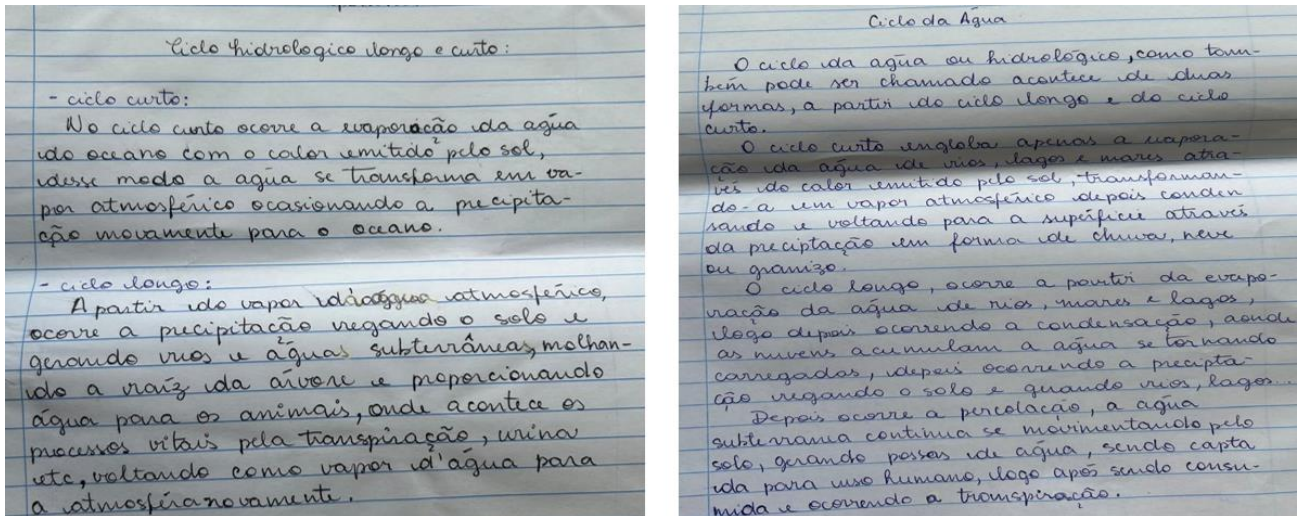 Ciclo hidrologico longo e curto:
- ciclo curto:
No ciclo curto ocorre a evaporação da agúa
do oceano com o calor emitido pelo sol,
desse modo a agúa se transforma em va-
por atmosférico ocasionando a precipita-
ção novamente para o oceano.
- ciclo longo:
A partir do vapor atmosférico,
ocorre a precipitação regando o solo e
gerando rios e águas subterrâneas, molhan-
do a raíz da árvore e proporcionando
água para os animais, onde acontece os
processos vitais pela transpiração, urina
etc, voltando como vapor d'água para
a atmosféra novamente.
Ciclo da Água
O ciclo da agúa ou hidrológico, como tam-
bém pode ser chamado acontece de duas
formas, a partir do ciclo longo e do ciclo
curto.
O ciclo curto engloba apenas a evapora-
ção da água de rios, lagos e mares atra-
vés do calor emitido pelo sol, transforman-
do-a em vapor atmosférico depois conden
sando e voltando para a supérficie através
da preciptação em forma de chuva, neve
ou granizo.
O ciclo longo, ocorre a partir da evapo-
ração da água de rios, mares e lagos,
logo depois ocorrendo a condensação, aonde
as nuvens acumulam a agúa se tornando
carregadas, depois ocorrendo a precipta-
ção regando o solo e guando rios, lagos...
Depois ocorre a percolação, a agúa
subterrania continua se movimentando pelo
solo, gerando possas de água, sendo capta
da para uso humano, logo após sendo consu-
mida e ocorrendo a transpiração.